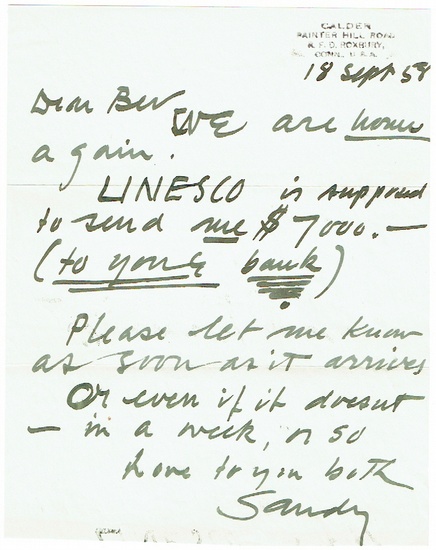 CALDER
PAINTER HILL ROAD
R. F. D. ROXBURY,
CONN. U. S. A.
18 Sept 58
Dear Bev
WE are home
again.
UNESCO is supposed
to send me $7000.—
(to your bank)
Please let me know
as soon as it arrives
Or even if it doesnt
— in a week, or so
Love to you both
Sandy